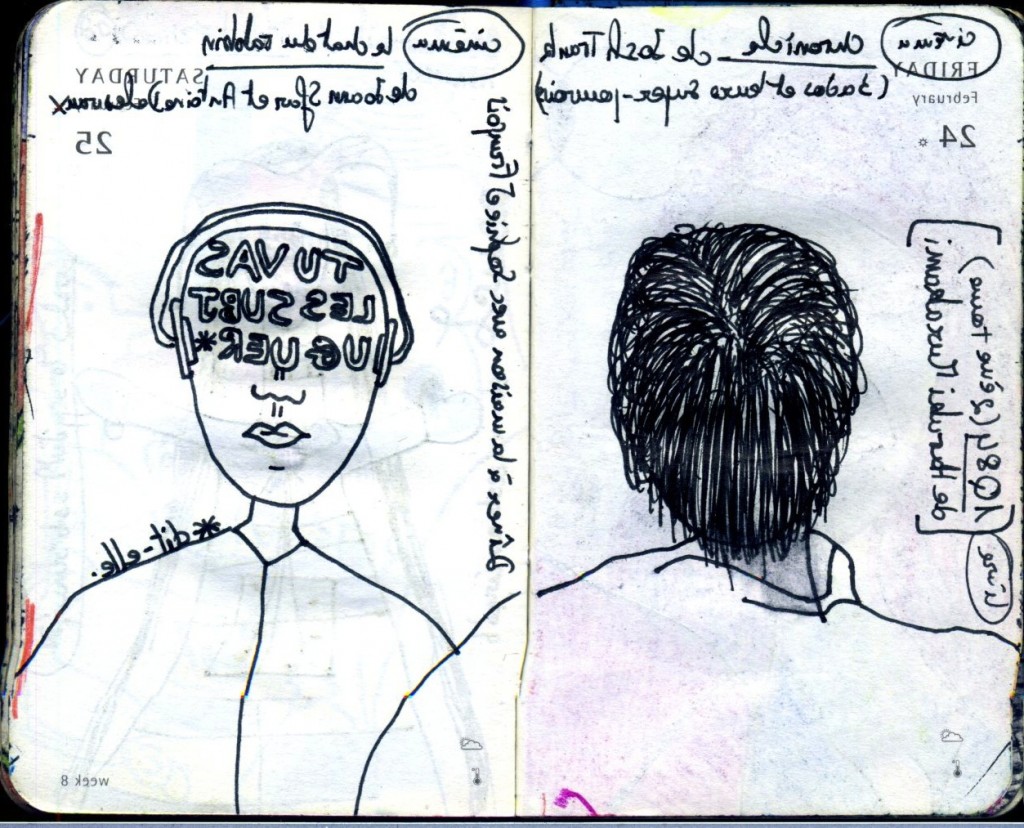 cinéma
Chronicle de Josh Trank
(3 ados et leurs super-pouvoirs)
FRIDAY
February
24
livre
1Q84 (2ème tome)
de Haruki Murakami
cinéma
le chat du rabbin
de Joann Sfar et Antoine Delesvaux
SATURDAY
25
Dîner à la maison avec Sophie et
TU VAS
LES SUBJ
UGUER*
*dit-elle.
week 8